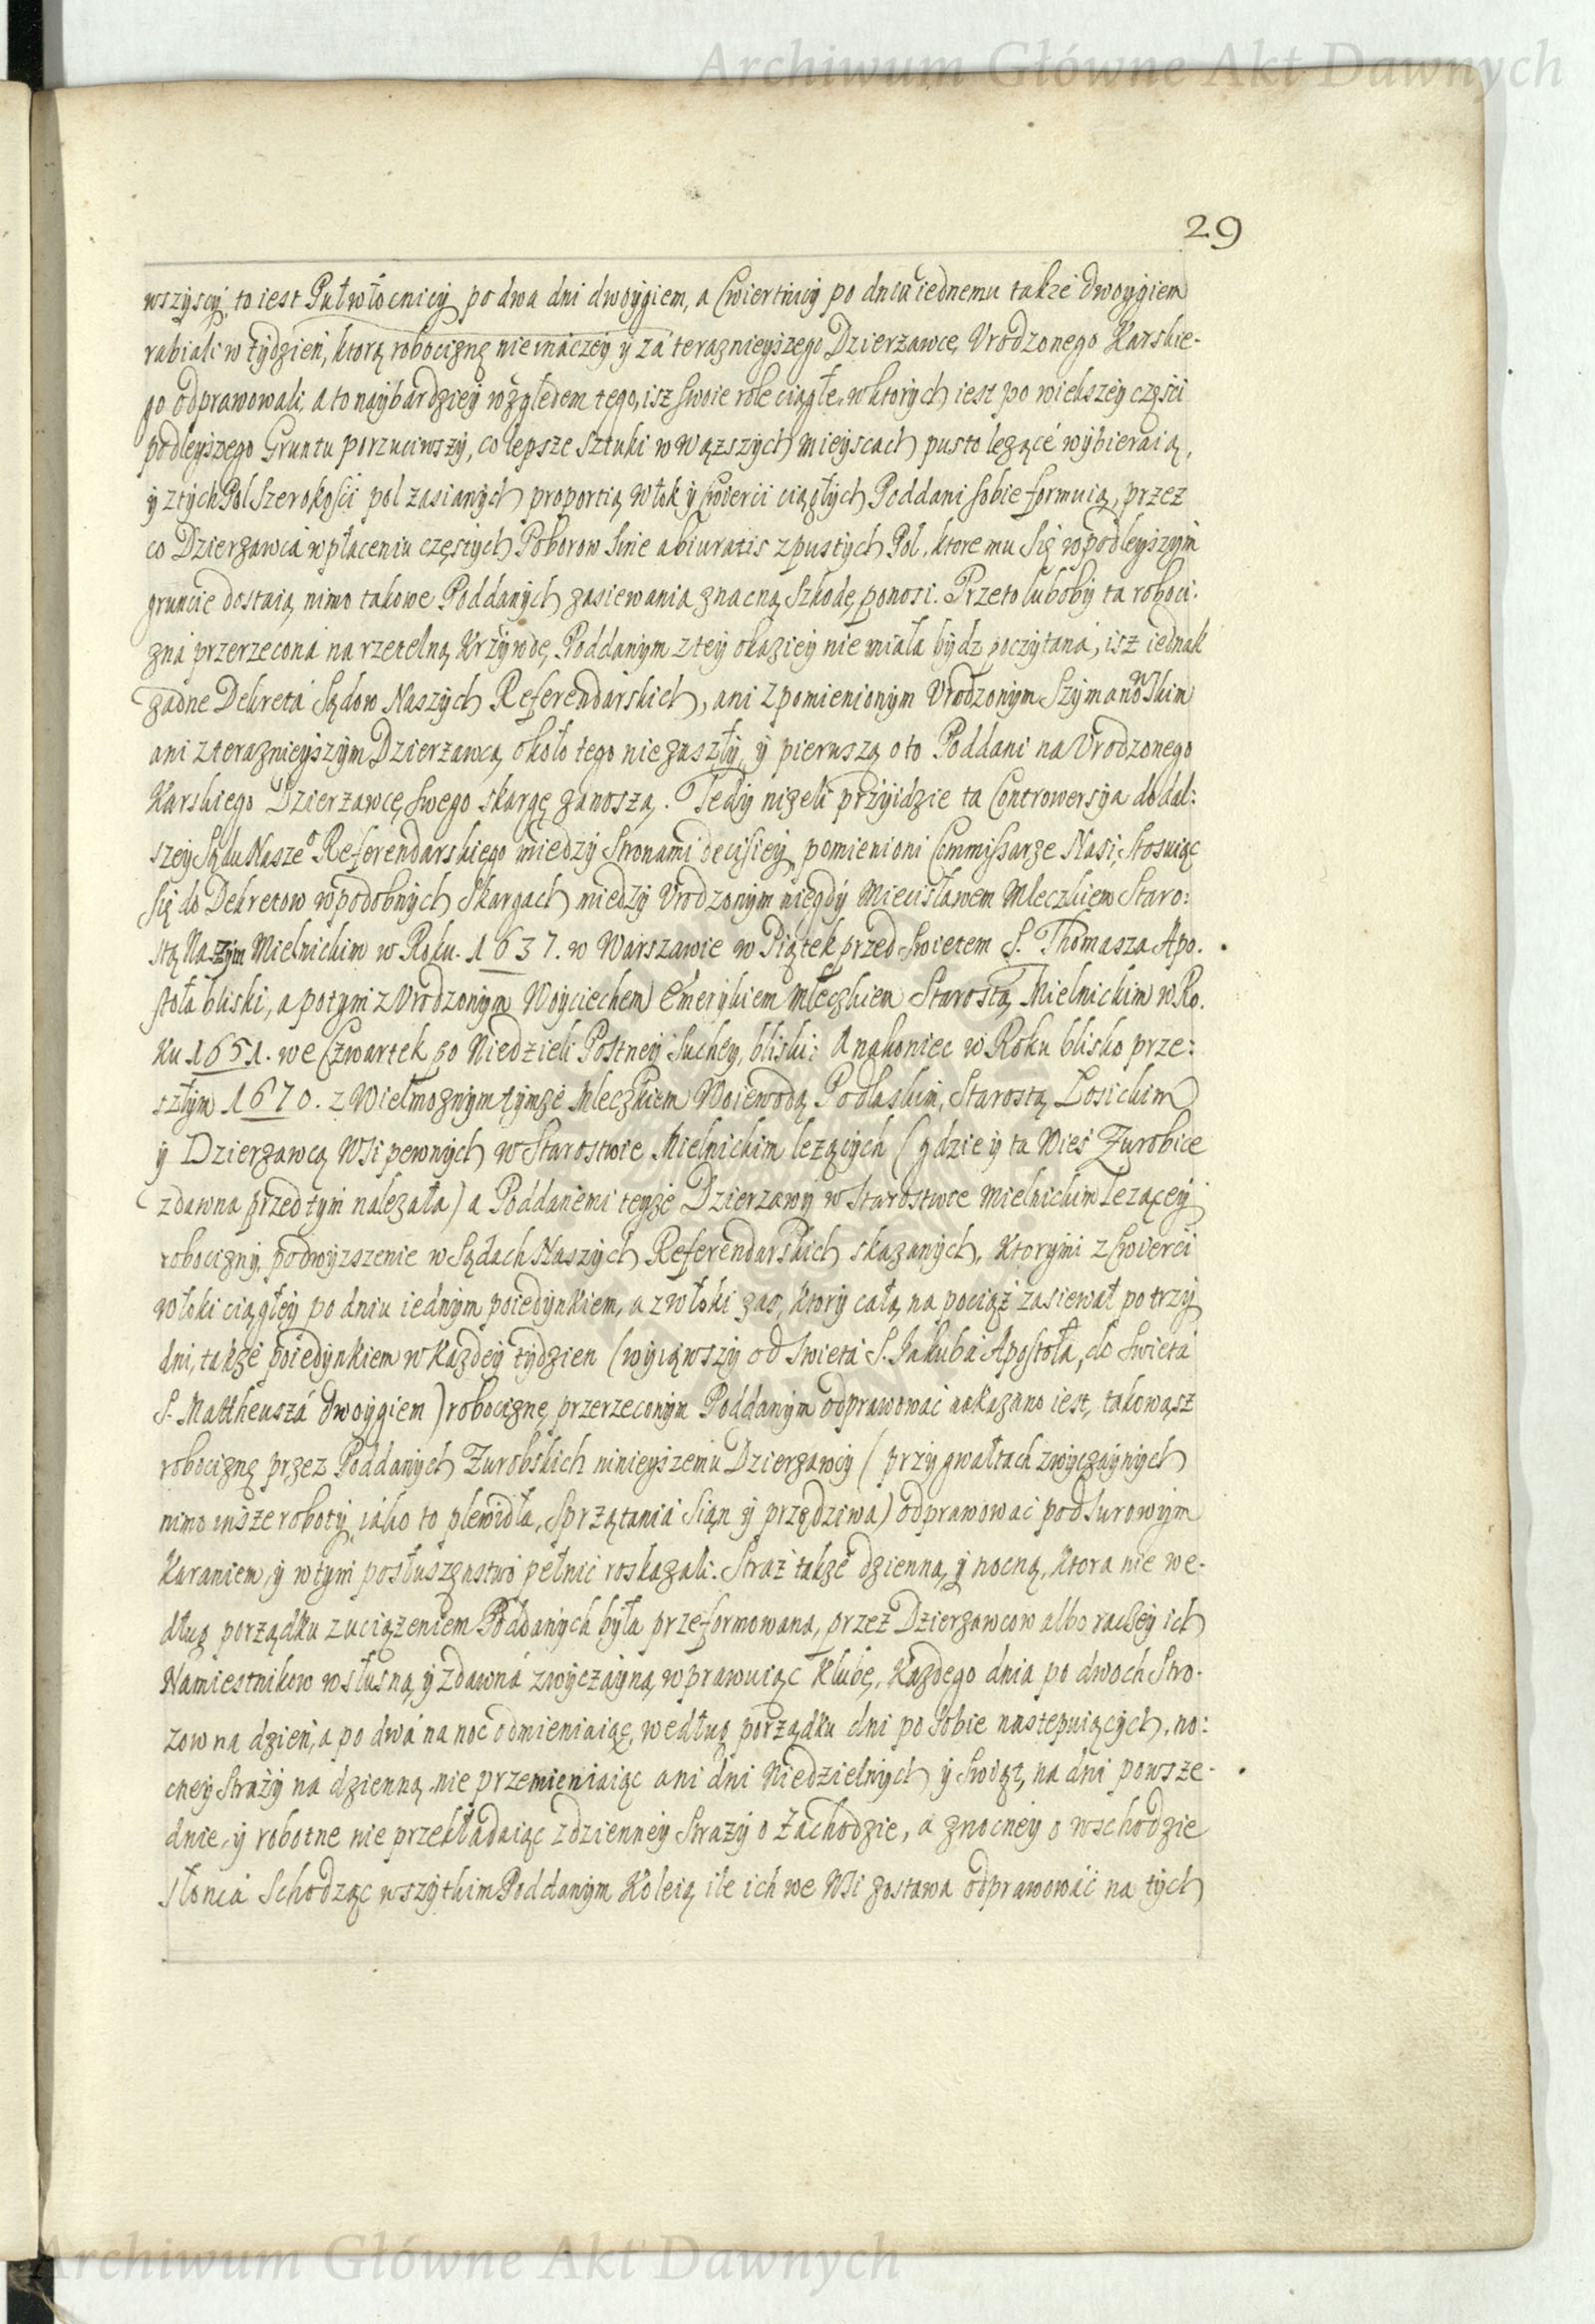 Archiwum Główne Akt Dawnych
29
wszyscy, to iest Pułwłocnicy po dwa dni dwoygiem, a Cwiertnicy po dniu iednemu także dwoygiem
rabiali w tydzień, ktorą robociznę nieinaczey y zá teraznieyszego Dzierżawce Vrodzonego Karskie-
go odprawowali, a to naybardziey względem tego, isz swoie role ciągłe, w ktorych iest po wiekszey części
podleyszego Gruntu porzuciwszy, co lepsze sztuki w wązszych mieyscach pusto lezącé wybieraią,
y z tych Pol Szerokości pol zasianych proportią włok y Cwierci ciągłych Poddani sobie formuią, przez
co Dzierzawcá w płaceniu częstych Poborow Sine abiuratis z pustych Pol, ktore mu się w podleyszym
gruncie dostaią, nimo takowe Poddanych zasiewania znacną Szkodę ponosi. Przeto luboby ta roboci:
zná przerzecona na rzetelną Krzywdę Poddanym z tey okaziey nie miała bydz poczytana, isz iednak
zadne Dekretá Sądow Naszych Referendarskich, ani z pomienionym Vrodzonym Szymanowskim
ani z teraznieyszym Dzierżawcą około tego niezaszły, y pierwszą o to Poddani na Vrodzonego
Karskiego Dzierżawcę swego skargę zanoszą. Tedy nizeli przyidzie ta Controwersya do dal:
szey Sądu Naszeo Referendarskiego miedzy Stronami decisiey, pomienioni Commissarze Nasi, Stosuiąc
się do Dekretow w podobnych Skargach miedzy Vrodzonym niegdy Miecisławem Mleczkiem Staro:
stą Naszym Mielnickim w Roku. 1637. w Warszawie w Piątek przed Swietem S. Thomasza Apo.
stoła bliski, a potym z Vrodzonym Woyciechem Emerykiem Mleczkiem Starostą Mielnickim w Ro.
Ku 1651. we Czwartek po Niedzieli Postney Suchey, bliski: A nakoniec w Roku blisko prze:
szłym 1670. z Wielmoznym tymze Mleczkiem Woiewodą Podlaskim, Starostą Łosickim
y Dzierzawcą Wsi pewnych w Starostwie Mielnickim lezących (gdzie y ta Wieś Zurobice
zdawna przed tym nalezała) a Poddanemi teyże Dzierżawy w Starostwie Mielnickim Lezącey
robocizny podwyzszenie w Sądach Naszych Referendarskich skazanych, Ktorymi z Cwierci
włoki ciągłey po dniu iednym poiedynkiem, a z włoki zas, ktory całą na pociąż zasiewał po trzy
dni, także poiedynkiem w Każdey tydzien (wyiąwszy od Swietá S. Jakubá Apostoła, do Swietá
S. Mattheuszá dwoygiem) robociznę przerzeconym Poddanym odprawować nakazano iest, takowąsz
robociznę przez Poddanych Zurobskich ninieyszemu Dzierzawcy (przy gwałtach zwyczaynych
nimo insze roboty, iáko to plewidła, Sprzątaniá Sian y przędziwa) odprawować pod Surowym
Karaniem, y w tym posłuszenstwo pełnic roskazali. Straż także dzienną, y nocną, Ktora nie we-
dług porządku z uciążeniem Poddanych była przeformowana, przez Dzierzawcow albo raczey ich
Namiestnikow w słusną, y zdawná zwyczayną, wprawuiąc Klubę, Kazdego dnia po dwoch Stro-
zow na dzień, a po dwá na noc odmieniaiąc, według porządku dni po sobie nastepuiących, no:
cney Strazy na dzienną, nie przemieniaiąc ani dni Niedzielnych y Swiąt, na dni powsze-
dnie y robotne nie przekładaiąc z dzienney Strazy o Zachodzie, a z nocney o wschodzie
Słońca Schodząc wszytkim Poddanym Koleią ile ich we Wsi zostawa odprawować na tych
Archiwum Główne Akt Dawnych